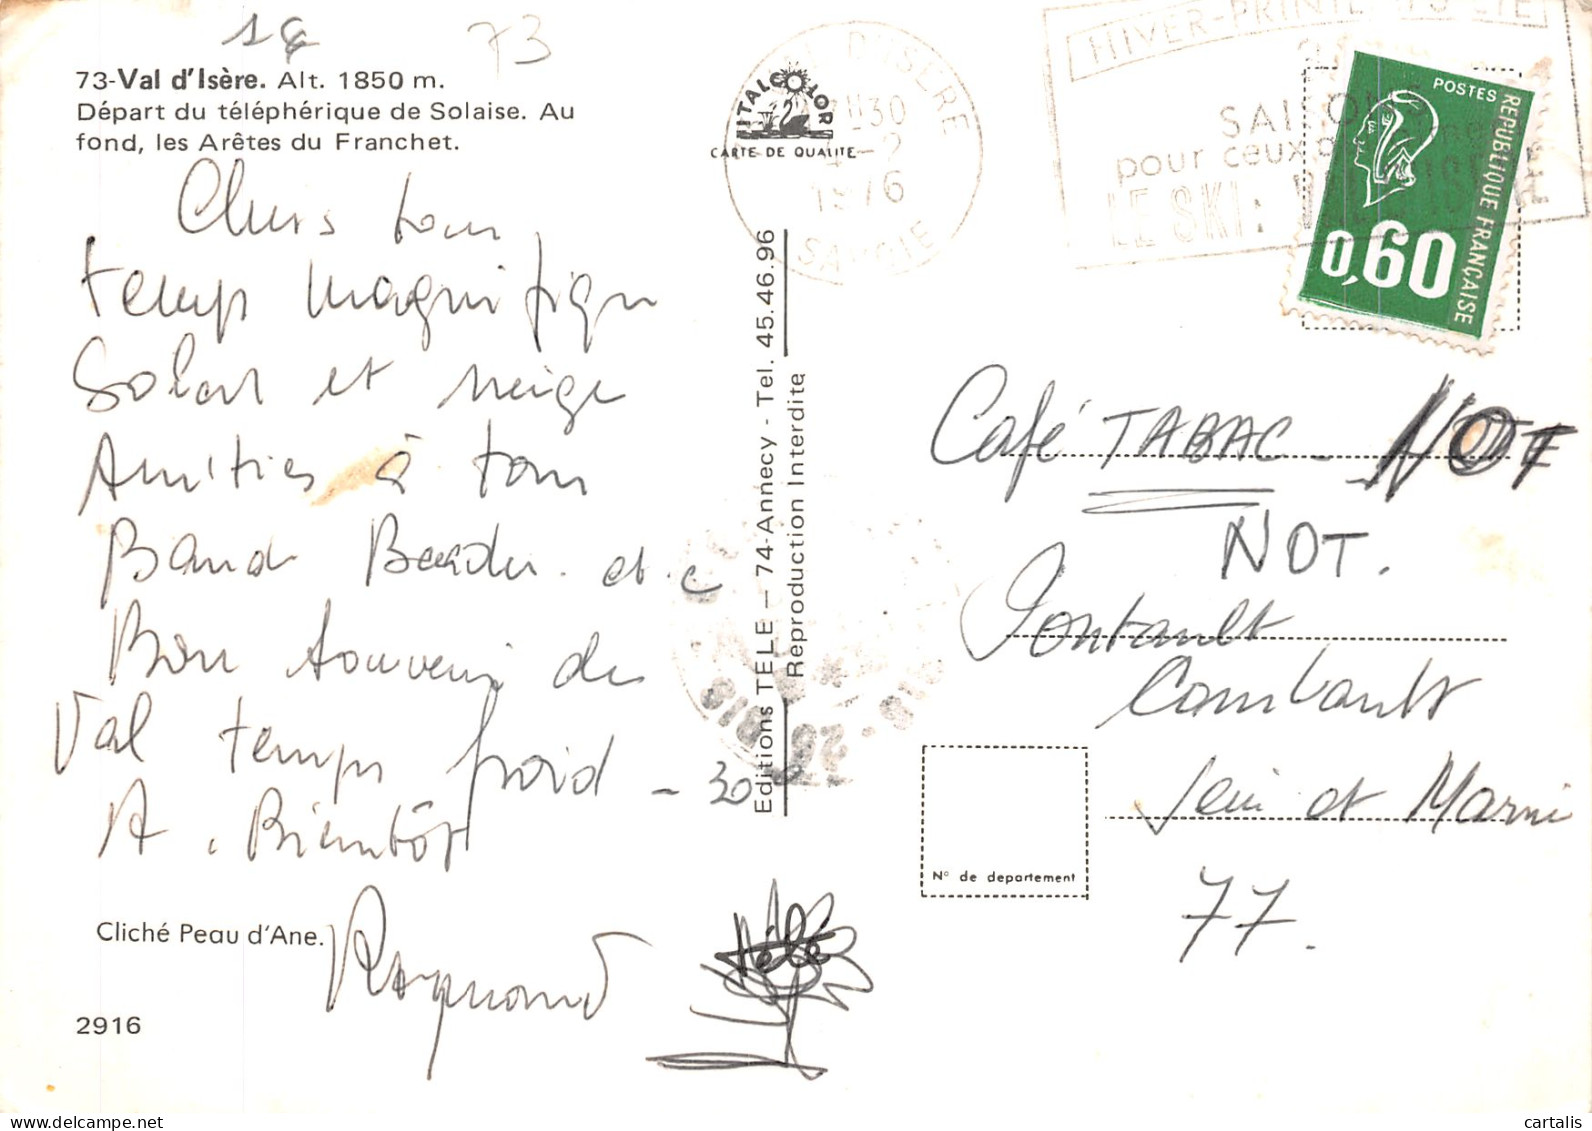 73
73-Val d'Isère. Alt. 1850 m.
Départ du téléphérique de Solaise. Au
fond, les Arêtes du Franchet.
Chers tous
temps magnifique
Soleil et neige
Amitiés à tous
Bon souvenir de
Val temps froid - 30
A. Bientôt
Raymond
Cliché Peau d'Ane.
2916
ITALCOLOR
CARTE DE QUALITE
Editions TELE — 74-Annecy - Tel. 45.46.96
Reproduction Interdite
VAL D'ISERE
1976
SAVOIE
HIVER-PRINTEMPS-ETE
SAISONS
pour ceux
LE SKI: VAL D'ISERE
POSTES
REPUBLIQUE FRANÇAISE
0,60
Café TABAC - NOT
NOT.
Pontault
Combault
Seine et Marne
77.
N° de departement
cartalis